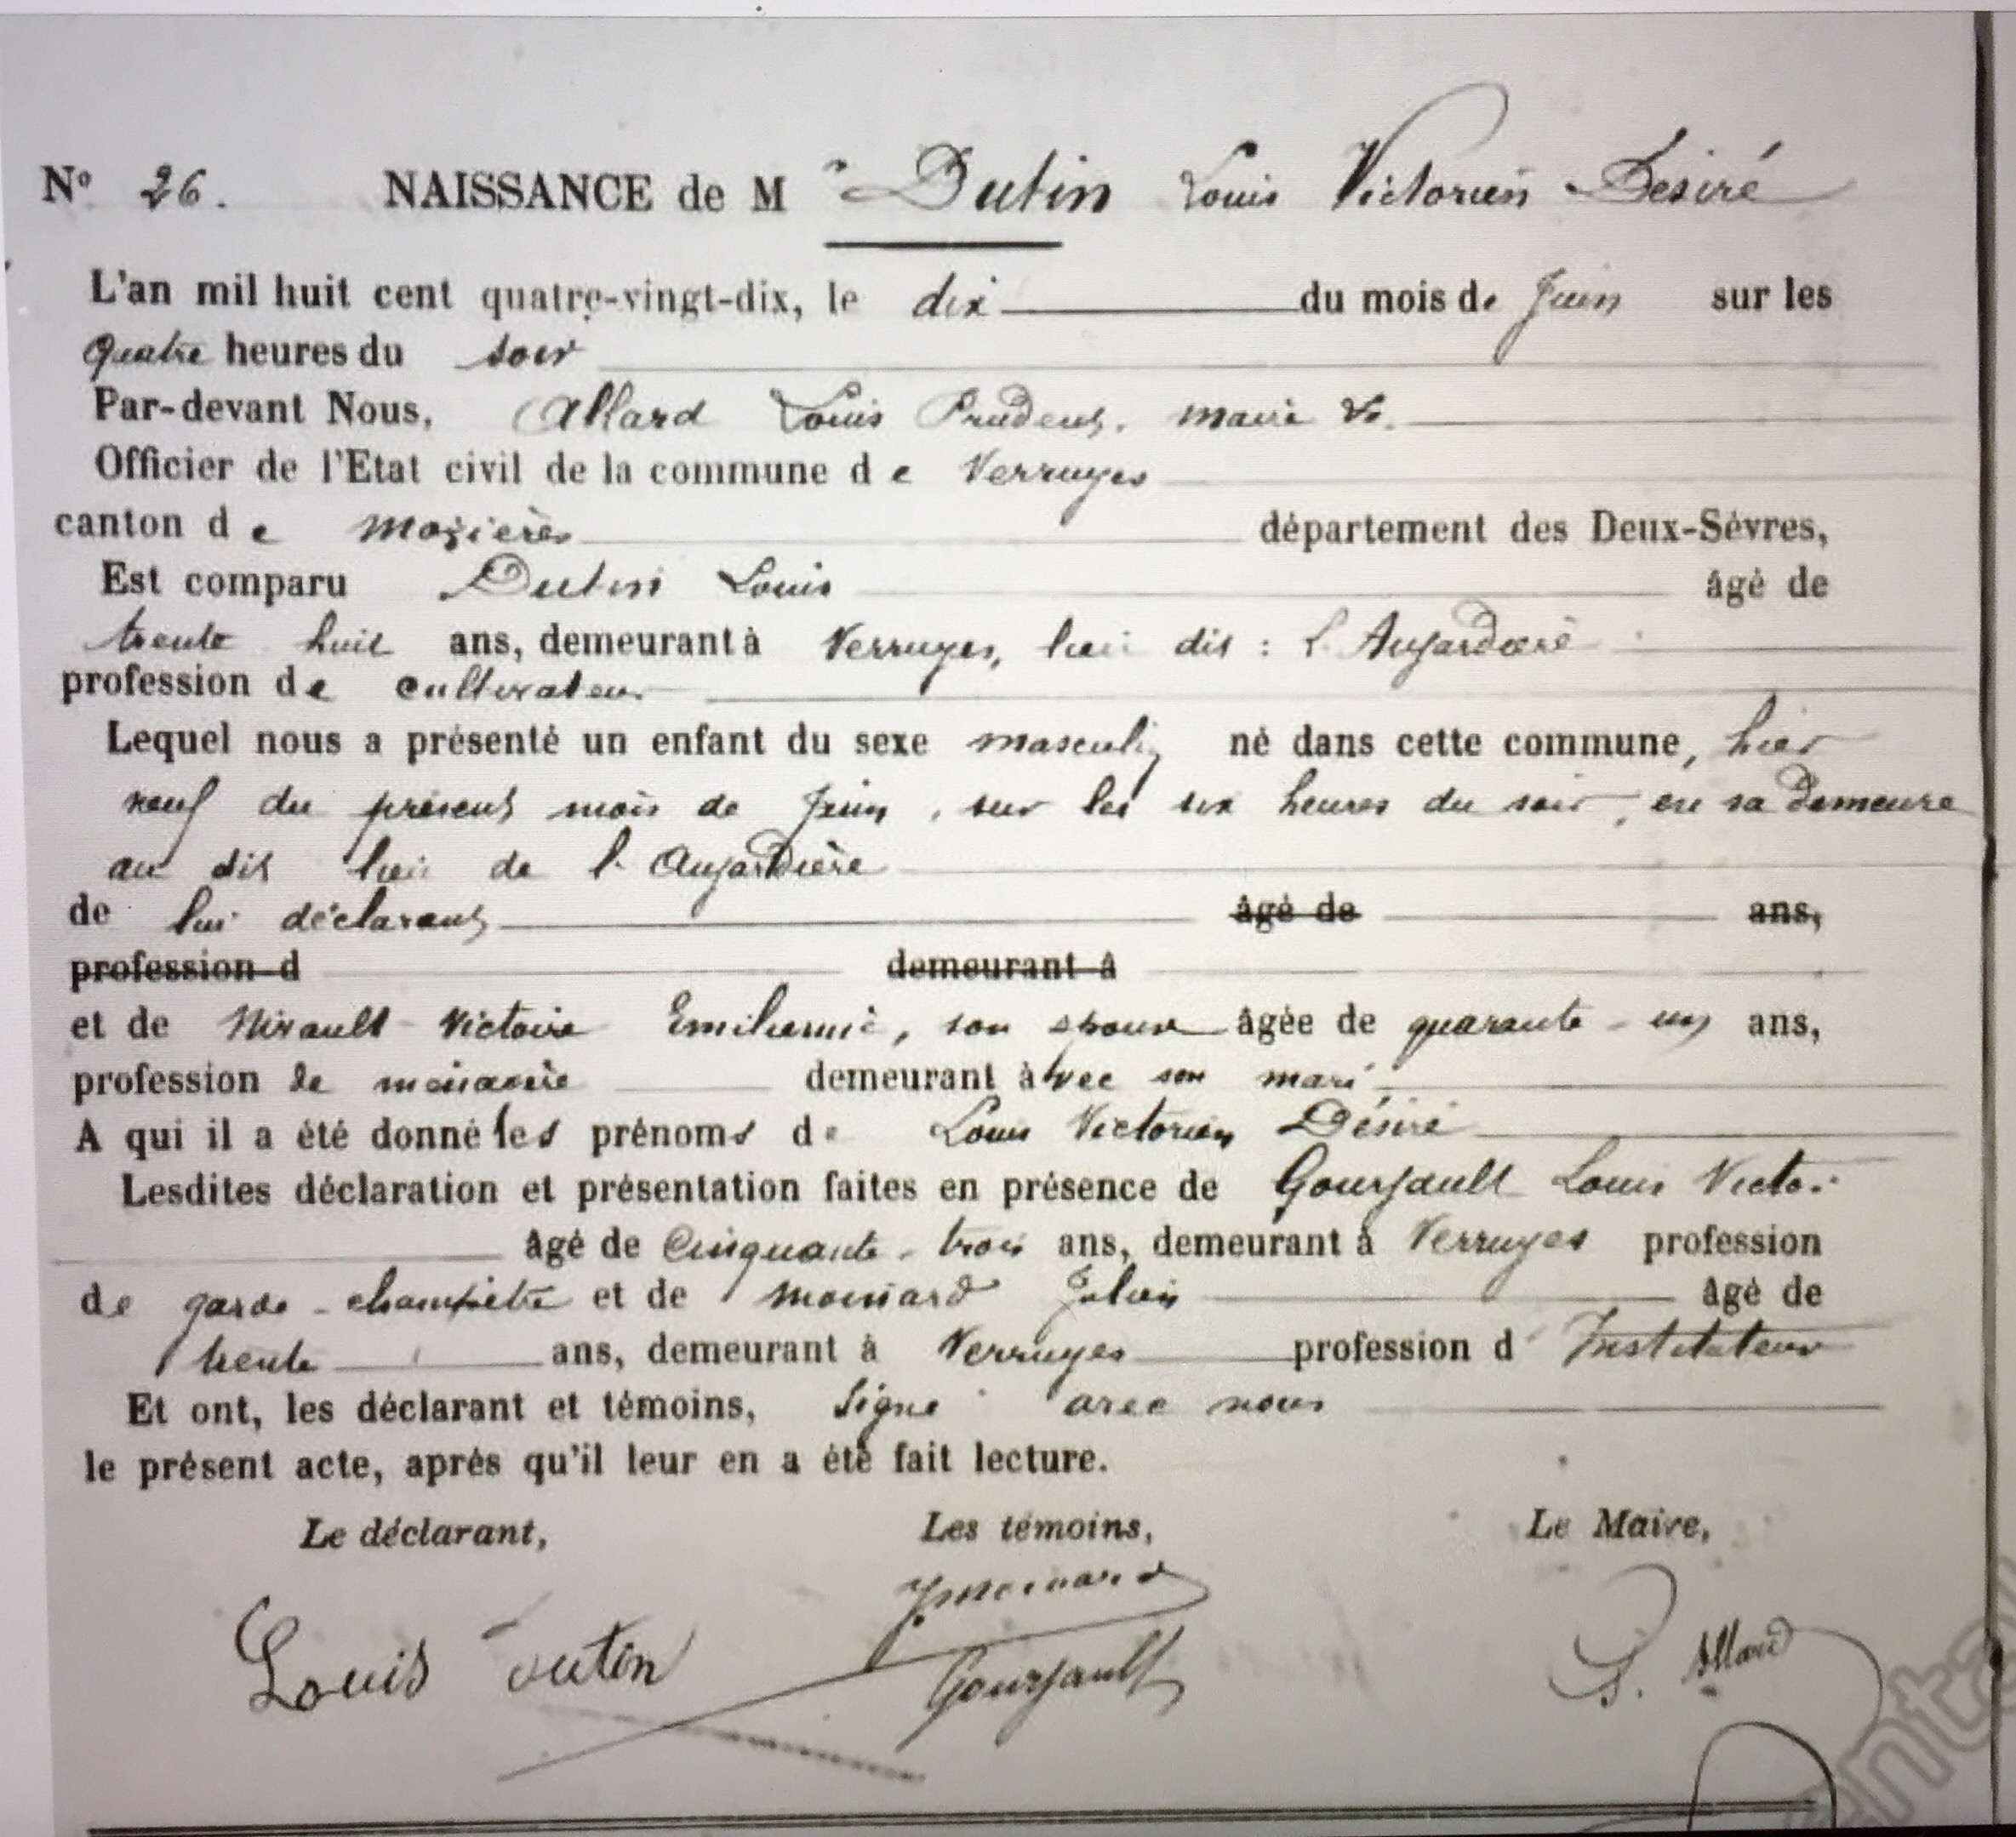 N° 26. NAISSANCE de M r Dutin Louis Victorien Désiré
L'an mil huit cent quatre-vingt-dix, le dix du mois de Juin sur les
quatre heures du soir
Par-devant Nous, Allard Louis Prudent, maire
Officier de l'Etat civil de la commune de Verruyes
canton de Mazières département des Deux-Sèvres,
Est comparu Dutin Louis âgé de
trente huit ans, demeurant à Verruyes, lieu dit : L'Aujardière
profession de cultivateur
Lequel nous a présenté un enfant du sexe masculin né dans cette commune, hier
neuf du présent mois de Juin, sur les six heures du soir, en sa demeure
au dit lieu de l'Aujardière
de lui déclarant âgé de ans,
profession d demeurant à
et de Mirault Victoire, son épouse âgée de quarante-un ans,
profession de ménagère demeurant avec son mari
A qui il a été donné les prénoms de Louis Victorien Désiré
Lesdites déclaration et présentation faites en présence de Gourjault Louis Victor
âgé de cinquante-trois ans, demeurant à Verruyes profession
de garde-champêtre et de Moinard Julien âgé de
trente ans, demeurant à Verruyes profession d' Instituteur
Et ont, les déclarant et témoins, signé avec nous
le présent acte, après qu'il leur en a été fait lecture.
Le déclarant, Les témoins, Le Maire,
J. Moinard
Louis Dutin Gourjault L. Allard